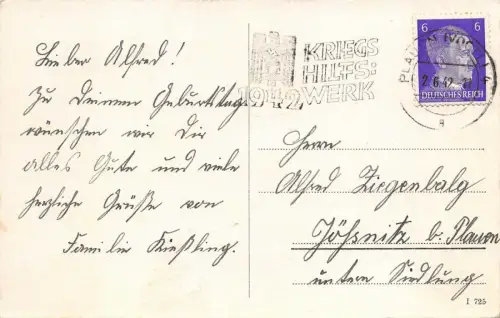 Lieber Alfred!
Zu Deinem Geburtstage
wünschen wir Dir
alles Gute und viele
herzliche Grüße von
Familie Kießling.
KRIEGS
HILFS:
1942 WERK
6 6
DEUTSCHES REICH
PLAUEN (VOGTL) 4
2.6.42
a
Herrn
Alfred Ziegenbalg
Jößnitz b. Plauen
untere Siedlung
I 725